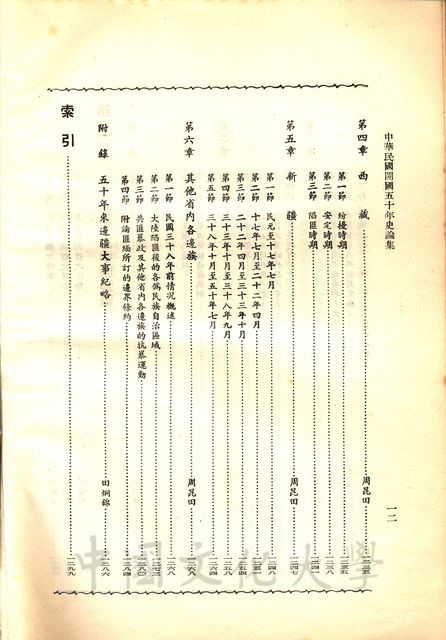 中華民國開國五十年史論集
一二
第四章 西藏 周昆田 二三五
第一節 紛擾時期 二三五
第二節 安定時期 二三八
第三節 陷匪時期 二四一
第五章 新疆 周昆田 二四七
第一節 民元至十七年七月 二四八
第二節 十七年七月至二十二年四月 二五一
第三節 二十二年四月至三十三年十月 二五四
第四節 三十三年十月至三十八年九月 二五八
第五節 三十八年十月至五十年七月 二六四
第六章 其他省內各邊族 周昆田 二六八
第一節 民國三十八年前情况概述 二六八
第二節 大陸陷匪後的各偽民族自治區域 二七三
第三節 共匪暴政及其他省內各邊族的抗暴運動 二八〇
第四節 附論匪偽所訂的邊界條約 二八四
附錄 五十年來邊疆大事紀略 田烱錦 二八六
索引 二九九
中國文化大學